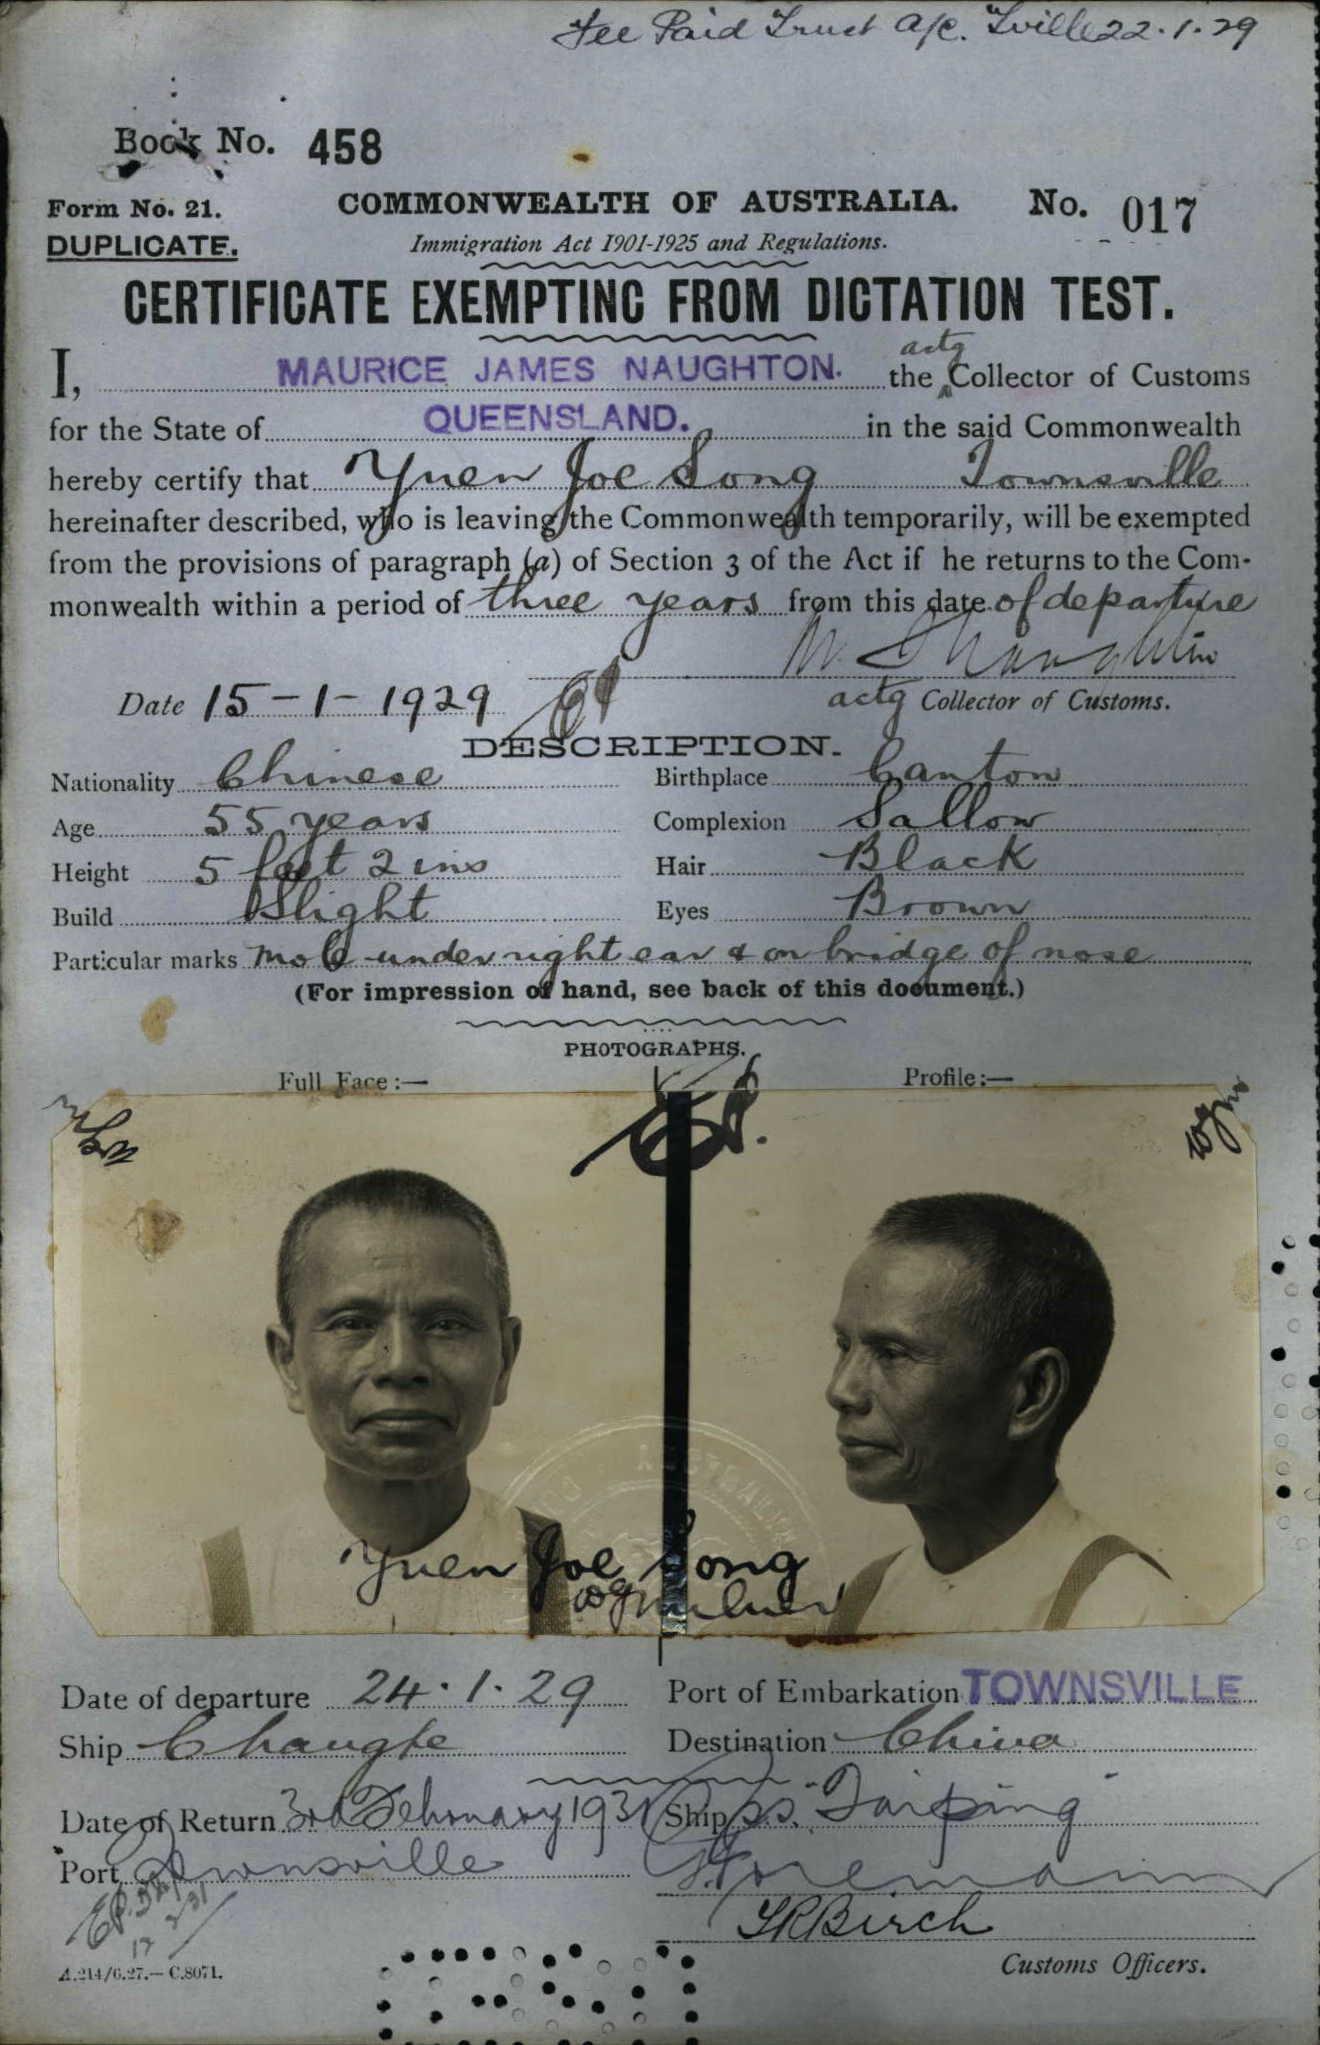 Fee Paid Trust a/c. Tville 22.1.29
Book No. 458
Form No. 21.
COMMONWEALTH OF AUSTRALIA.
No. 017
DUPLICATE.
Immigration Act 1901-1925 and Regulations.
CERTIFICATE EXEMPTING FROM DICTATION TEST.
I, MAURICE JAMES NAUGHTON. the actg Collector of Customs
for the State of QUEENSLAND. in the said Commonwealth
hereby certify that Yuen Joe Song Townsville
hereinafter described, who is leaving the Commonwealth temporarily, will be exempted
from the provisions of paragraph (a) of Section 3 of the Act if he returns to the Com-
monwealth within a period of three years from this date of departure
Date 15-1-1929
actg Collector of Customs.
DESCRIPTION.
Nationality Chinese Birthplace Canton
Age 55 years Complexion Sallow
Height 5 feet 2 ins Hair Black
Build Slight Eyes Brown
Particular marks Mole under right ear & on bridge of nose
(For impression of hand, see back of this document.)
PHOTOGRAPHS.
Full Face:— Profile:—
Yuen Joe Song
Date of departure 24.1.29 Port of Embarkation TOWNSVILLE
Ship Changte Destination China
Date of Return 3rd February 1931 Ship s.s. "Taiping"
Port Townsville
Customs Officers.
A.214/6.27.—C.8071.